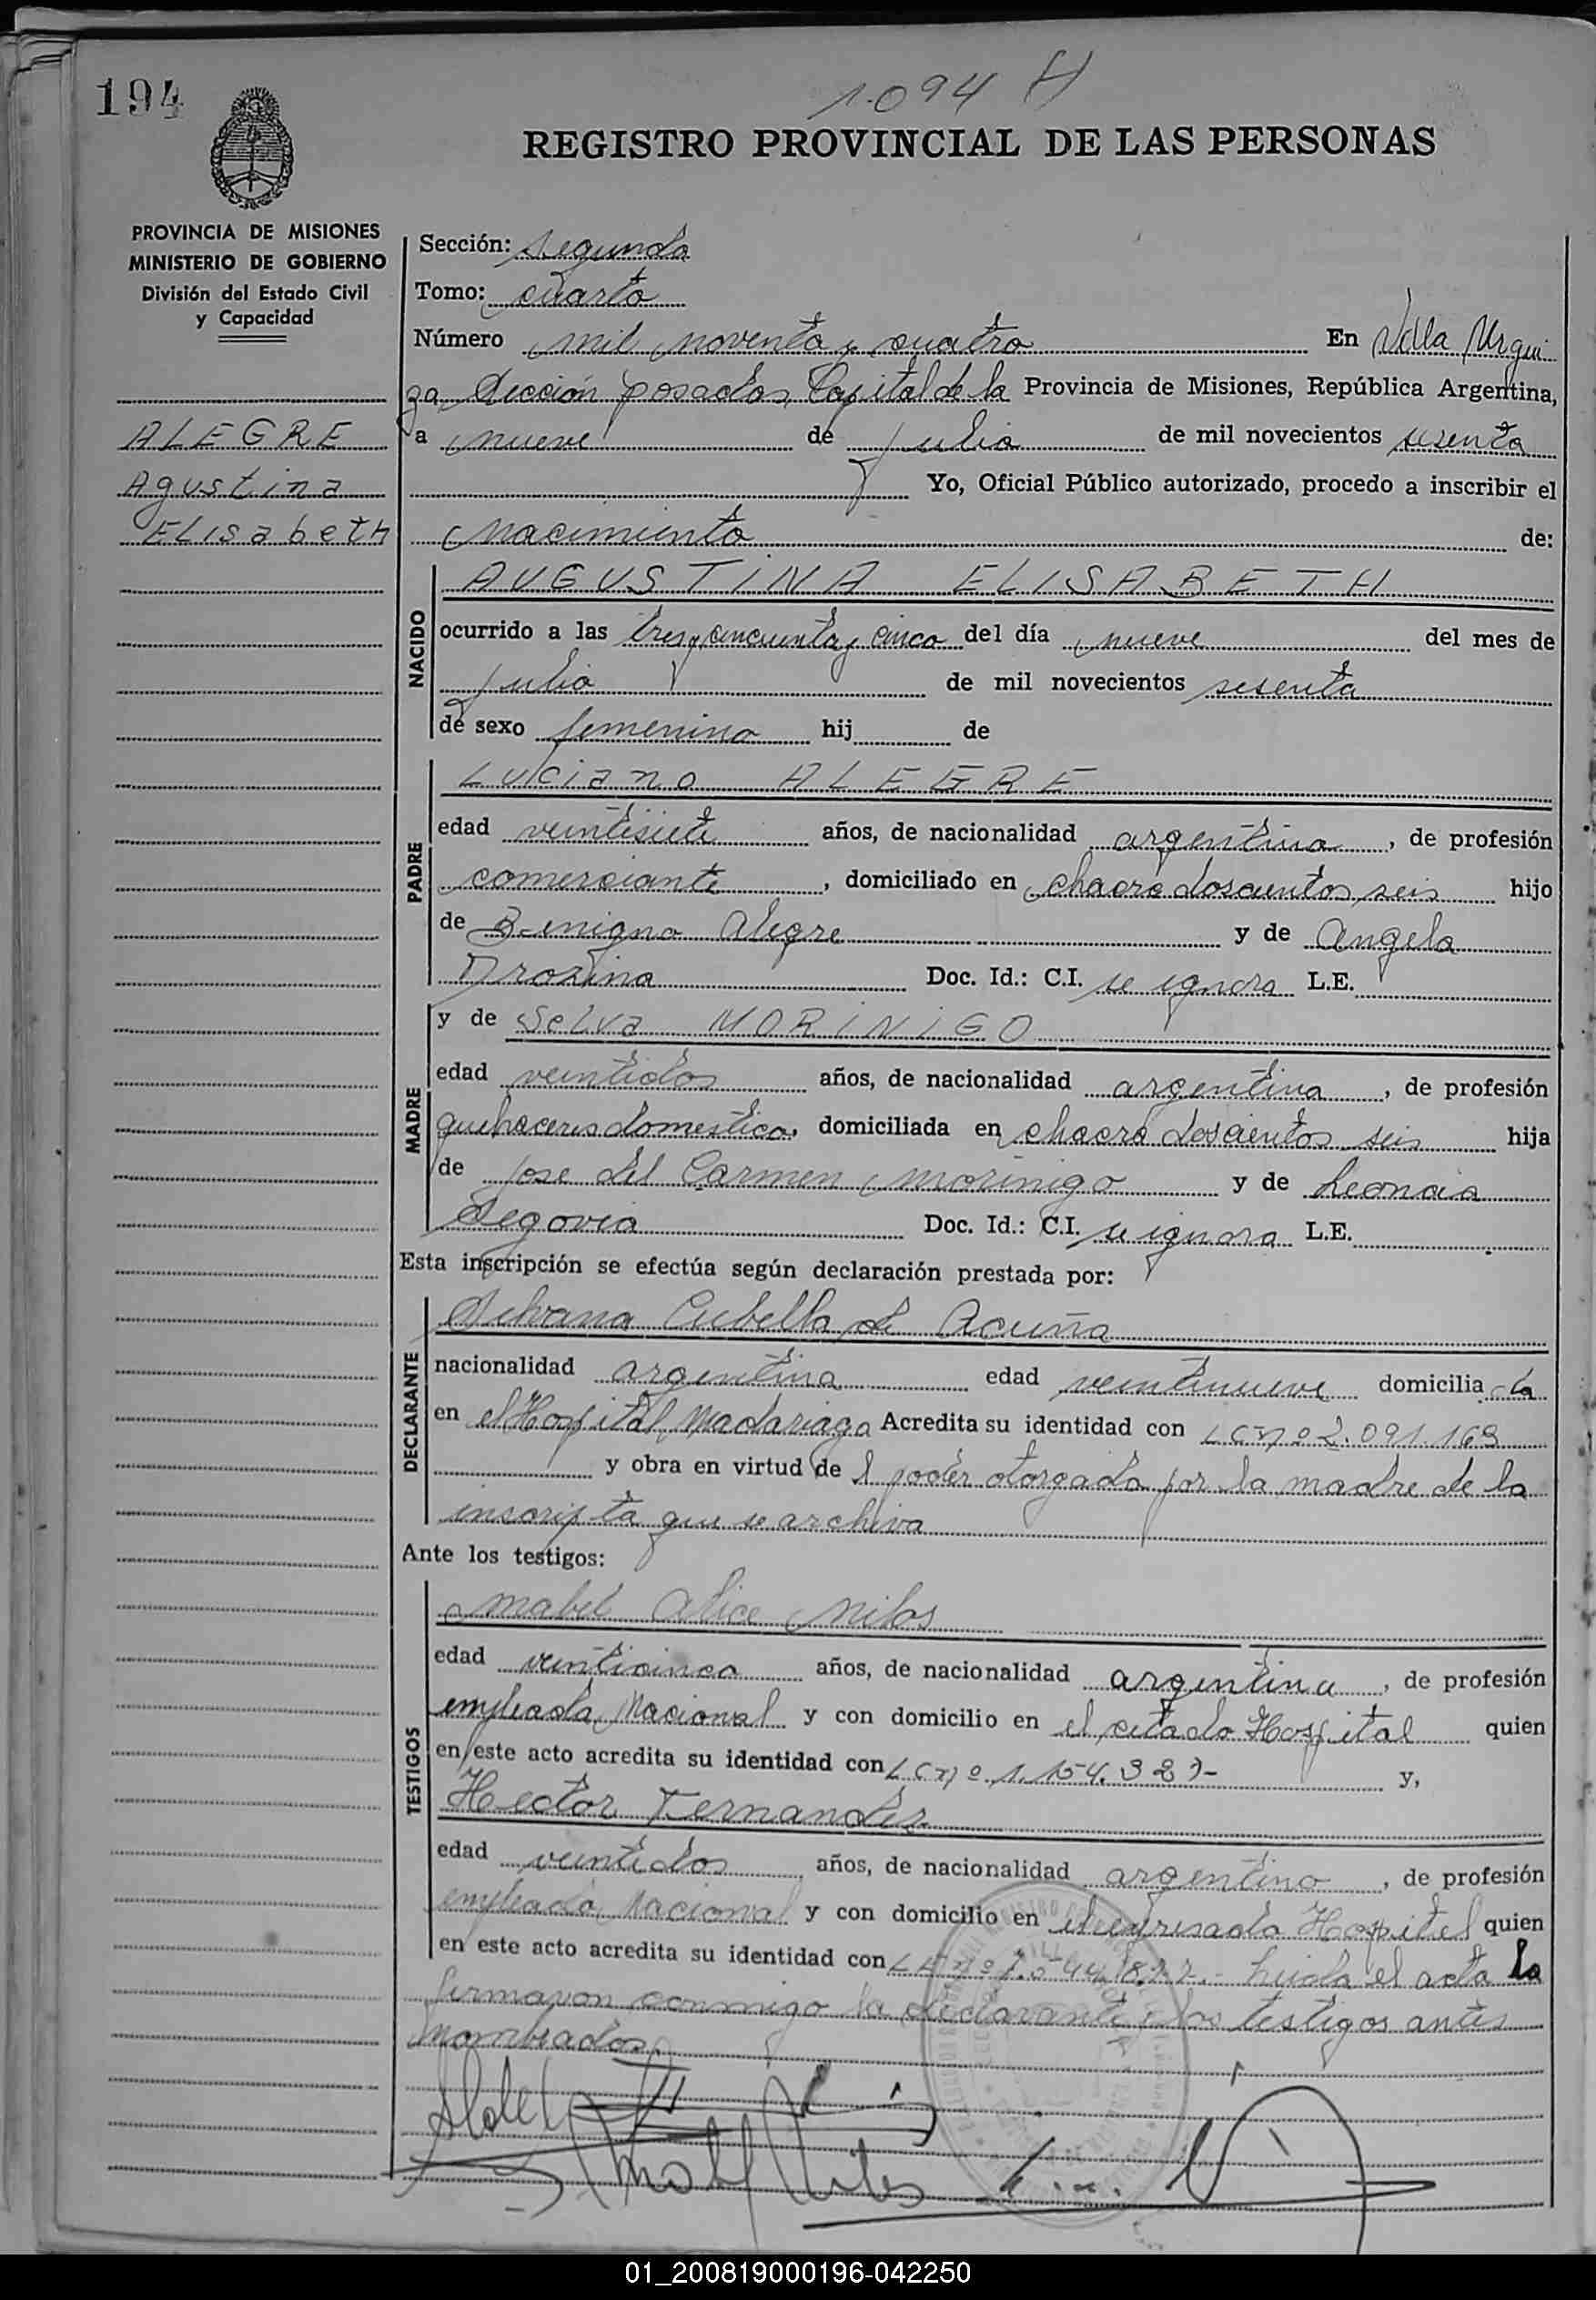 194
1.094 H
REGISTRO PROVINCIAL DE LAS PERSONAS
PROVINCIA DE MISIONES
MINISTERIO DE GOBIERNO
División del Estado Civil
y Capacidad
ALEGRE
Agustina
ELISabetH
Sección: Segunda
Tomo: cuarto
Número mil noventa y cuatro En Villa Urqui
za, Sección posadas, Capital de la Provincia de Misiones, República Argentina,
a nueve de julio de mil novecientos sesenta
Yo, Oficial Público autorizado, procedo a inscribir el
nacimiento de:
NACIDO
AUGUSTINA ELISABETH
ocurrido a las tres y cincuenta y cinco del día nueve del mes de
julio de mil novecientos sesenta
de sexo femenino hij de
PADRE
Luciano ALEGRE
edad veintisiete años, de nacionalidad argentina, de profesión
comerciante, domiciliado en chacra doscientos seis hijo
de Benigno Alegre y de Angela
Drozina Doc. Id.: C.I. se ignora L.E.
MADRE
y de Selva MORINIGO
edad veintidos años, de nacionalidad argentina, de profesión
quehaceres domestico, domiciliada en chacra doscientos seis hija
de jose del Carmen Morinigo y de Leoncia
Segovia Doc. Id.: C.I. se ignora L.E.
Esta inscripción se efectúa según declaración prestada por:
DECLARANTE
Silvana Cubilla de Acuña
nacionalidad argentina edad veintinueve domicilia da
en el Hospital Madariaga Acredita su identidad con L C nº 2.091.169
y obra en virtud de l poder otorgado por la madre de la
inscripta que se archiva
Ante los testigos:
TESTIGOS
Mabel Alice Milos
edad veinticinco años, de nacionalidad argentina, de profesión
empleada Nacional y con domicilio en el citado Hospital quien
en este acto acredita su identidad con L C nº 1.154.327- y,
Hector Fernandez
edad veintidos años, de nacionalidad argentino, de profesión
empleado Nacional y con domicilio en el expresado Hospital quien
en este acto acredita su identidad con L E nº 7.544.822.- Leida el acta la
firmaron conmigo la declarante y los testigos antes
nombrados.
01_200819000196-042250